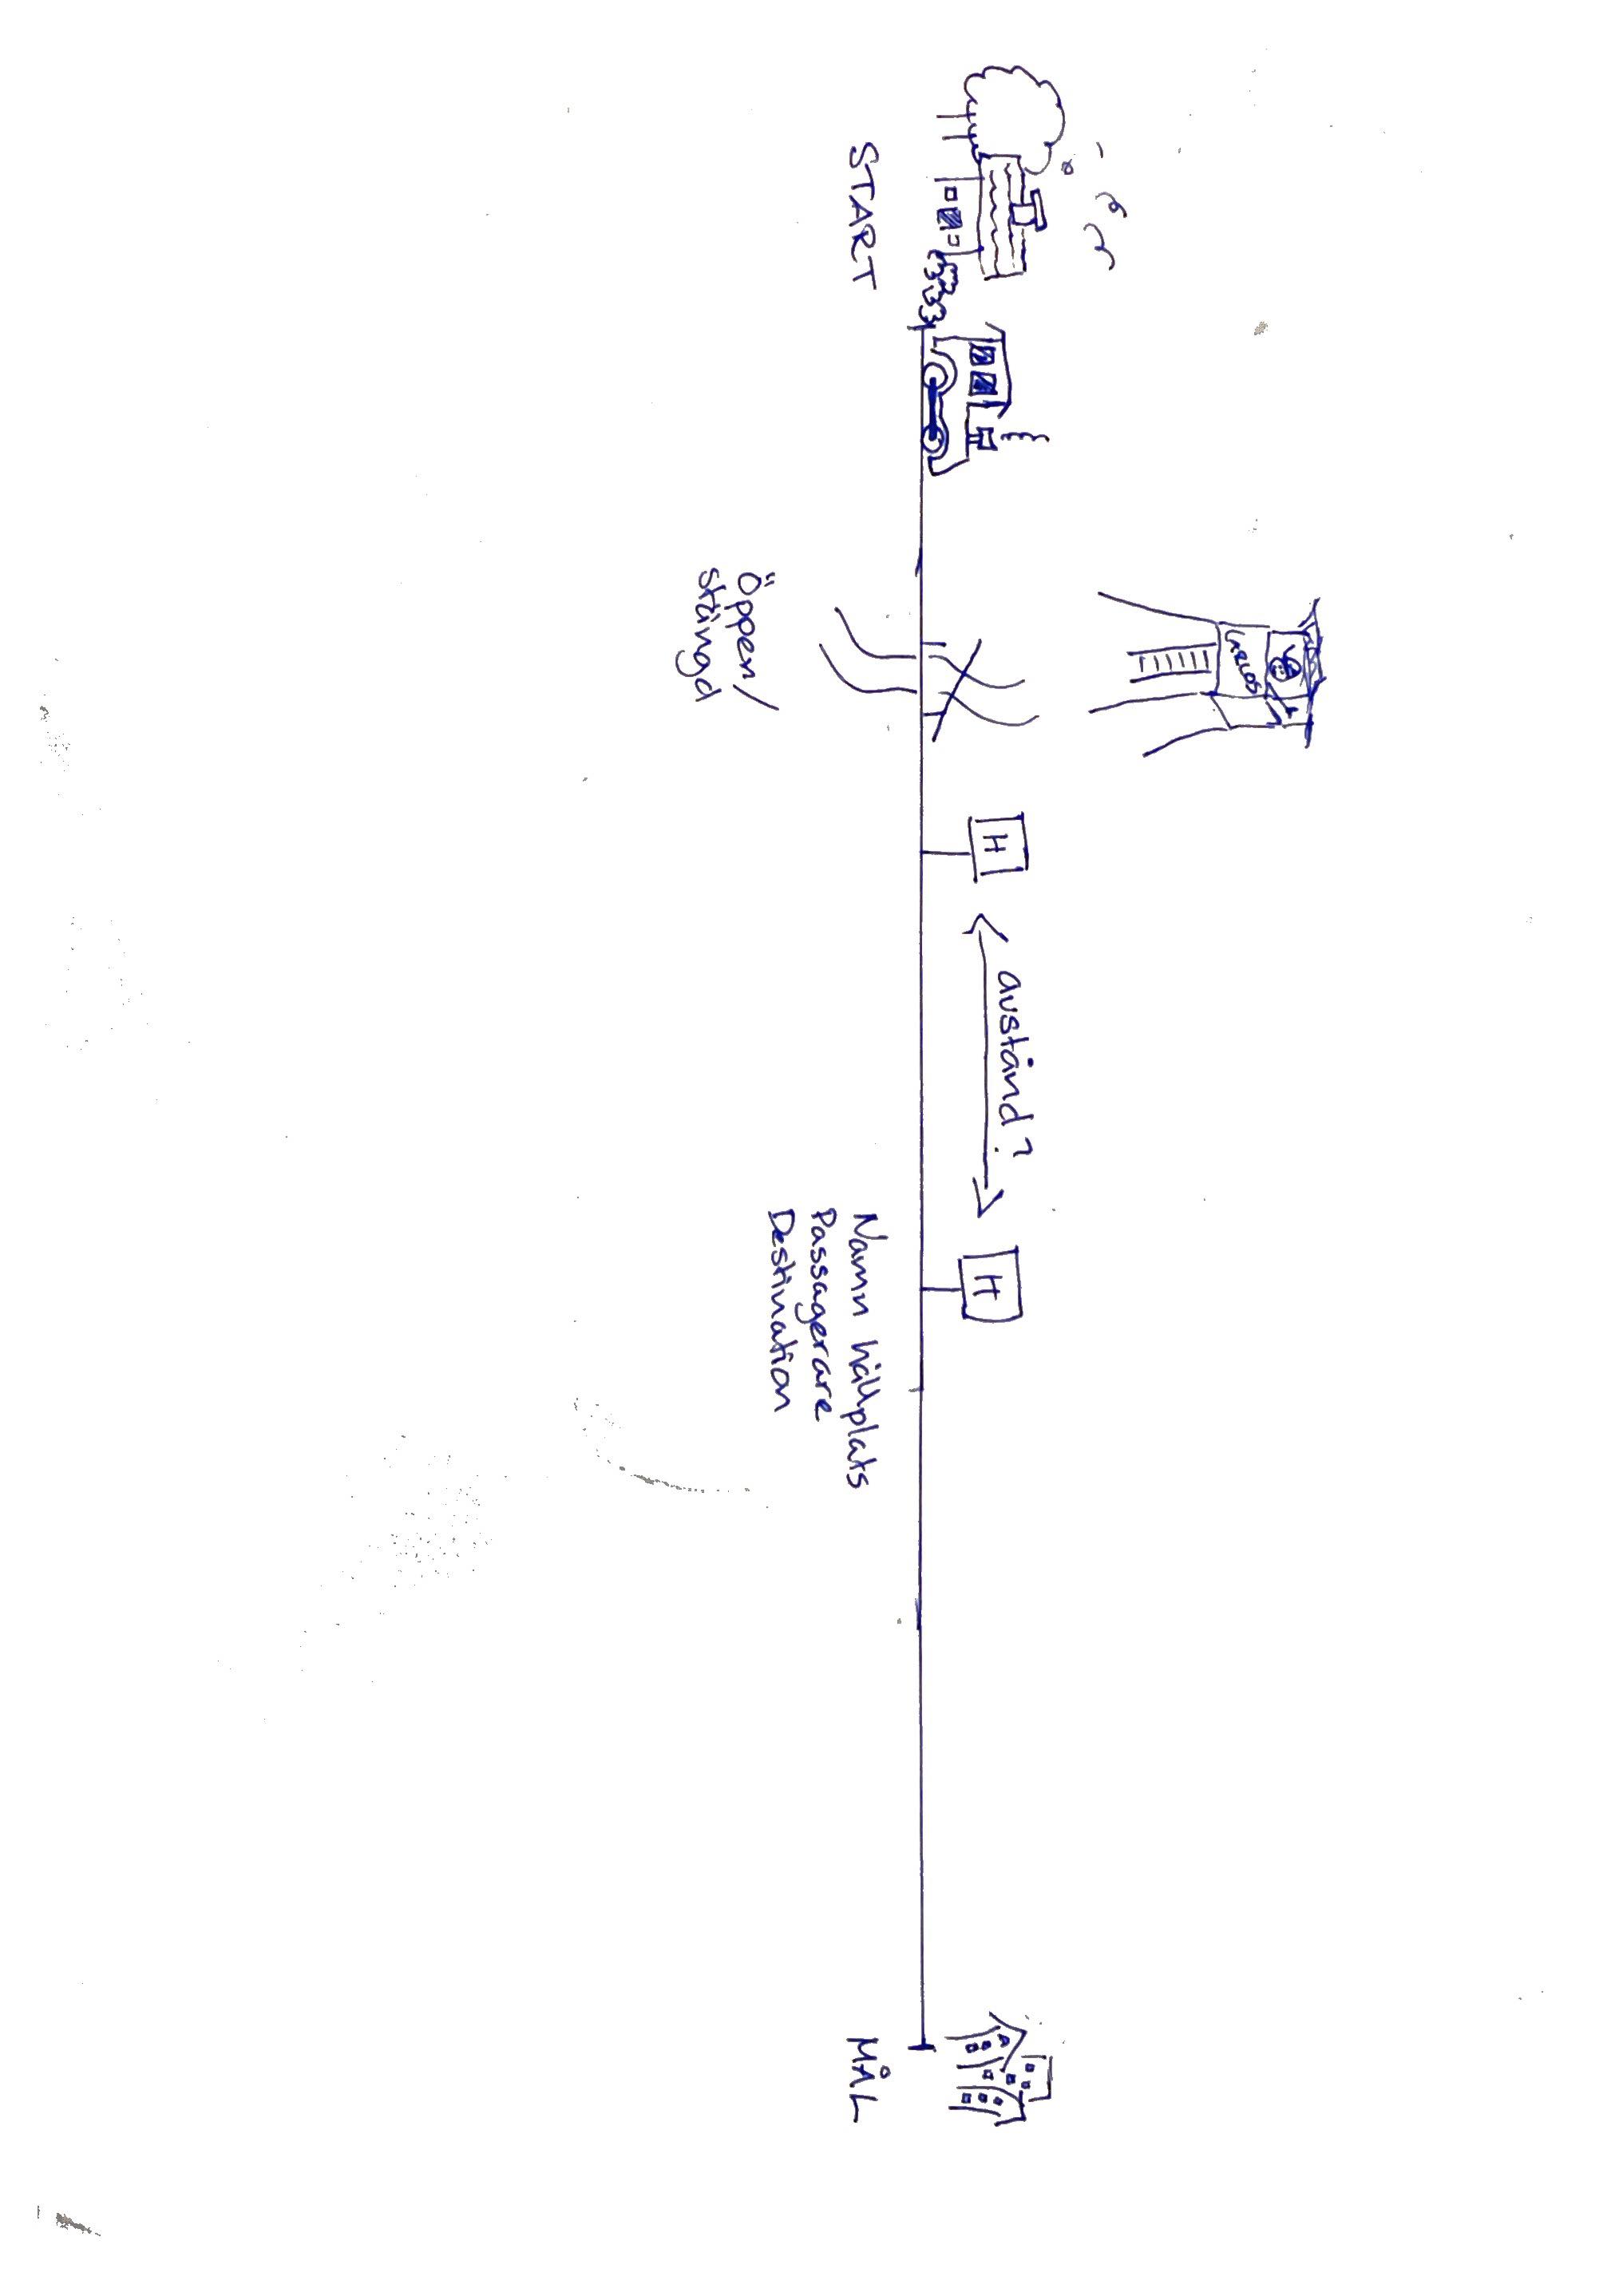 START
Öppen/
stängd
H
avstånd?
H
Namn hållplats
Passagerare
Destination
MÅL